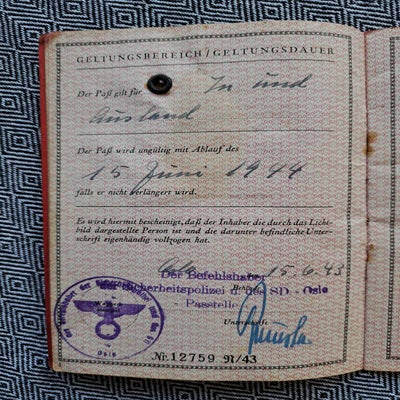 GELTUNGSBEREICH/GELTUNGSDAUER
Der Paß gilt für In und
Ausland
Der Paß wird ungültig mit Ablauf des
15 Juni 1944
falls er nicht verlängert wird.
Es wird hiermit bescheinigt, daß der Inhaber die durch das Licht-
bild dargestellte Person ist und die darunter befindliche Unter-
schrift eigenhändig vollzogen hat.
15.6.43
Der Befehlshaber
Sicherheitspolizei u. des SD - Oslo
Passtelle
Unterschrift
Oslo
Nr. 12759 N/43